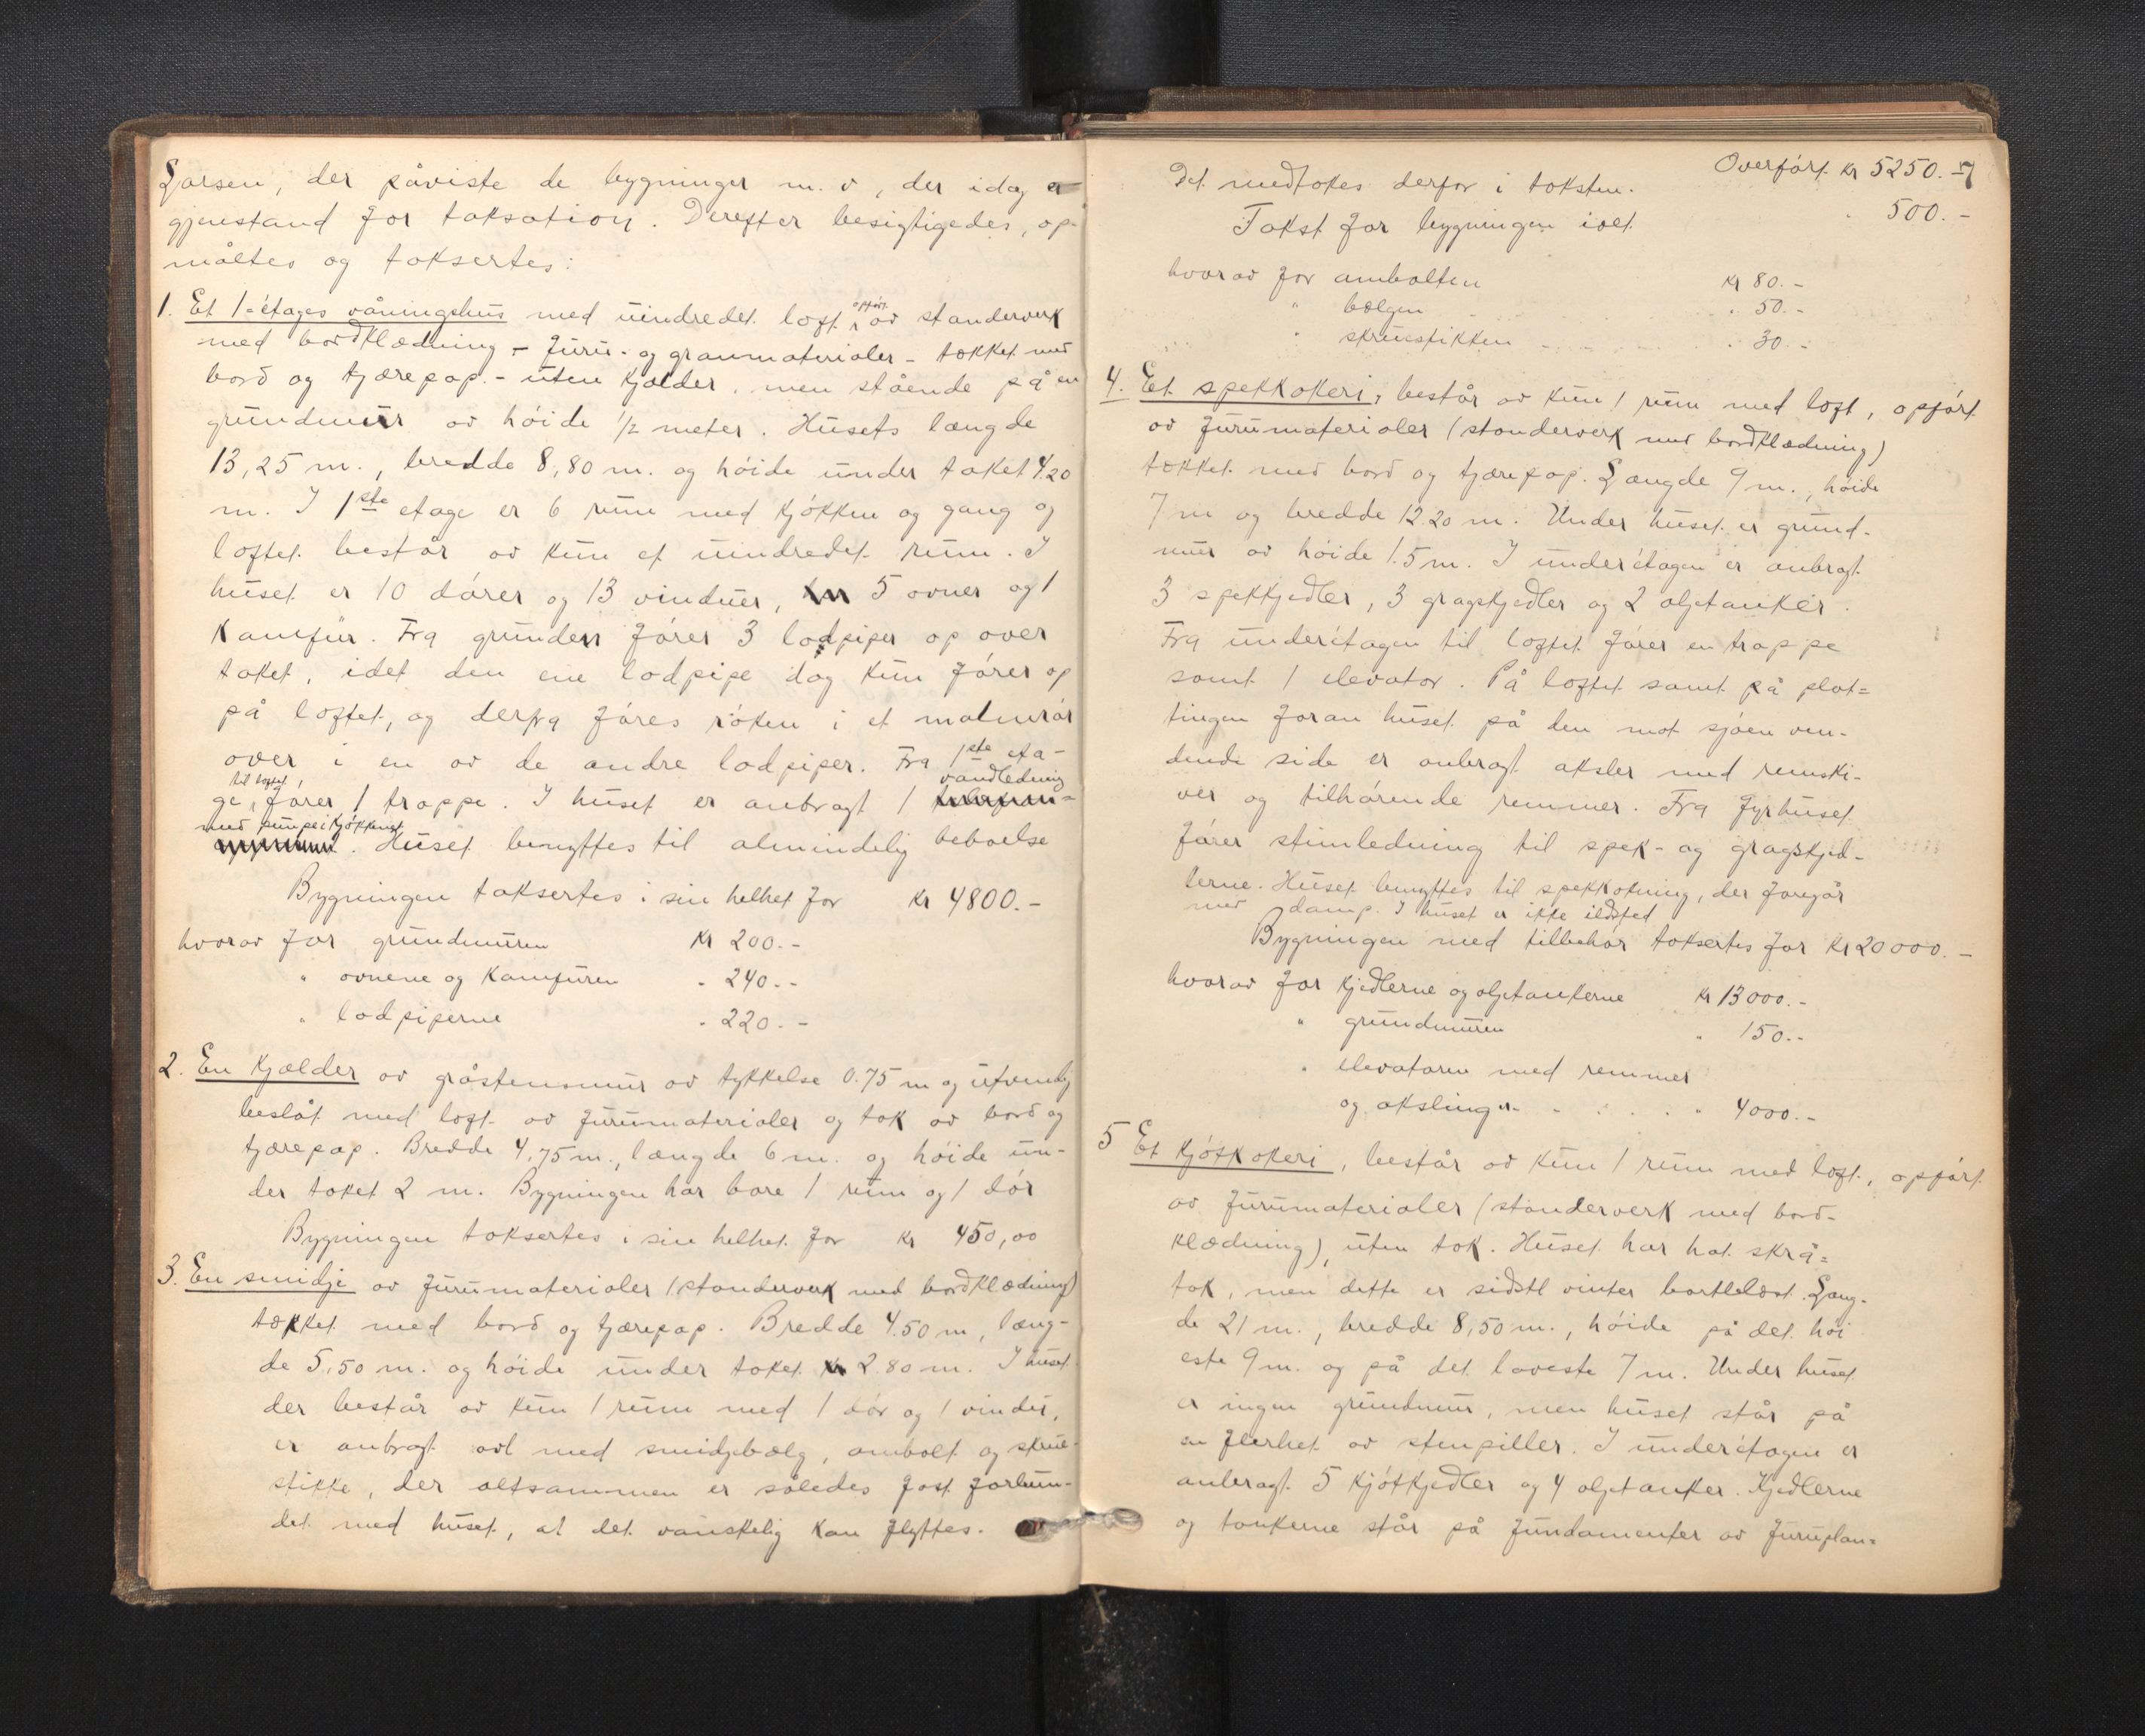 Larsen, der påviste de bygninger m. v, der idag er
gjenstand for taksation. Derefter besigtigedes, op-
måltes og taksertes:
1. Et 1-étages våningshus med uindredet loft, opført av standerverk
med bordklædning - furu- og granmaterialer - tækket med
bord og tjærepap. - uten kjælder, men stående på en
grundmur av høide 1/2 meter. Husets længde
13,25 m., bredde 8,80 m. og høide under taket 4.20
m. I 1ste etage er 6 rum med kjøkken og gang og
loftet består av kun et uindredet rum. I
huset er 10 dører og 13 vinduer, 5 ovner og 1
kamfur. Fra grunden fører 3 lodpiper op over
taket, idet den ene lodpipe dog kun fører op
på loftet, og derfra føres røken i et malmrør
over i en av de andre lodpiper. Fra 1ste eta-
ge til loftet, fører 1 trappe. I huset er anbragt 1 vandledning
med pumpe i kjøkkenet. Huset benyttes til almindelig beboelse
Bygningen taksertes i sin helhet for kr 4800.-
hvorav for grundmuren kr 200.-
" ovnene og kamfuren " 240.-
" lodpiperne " 220.-
2. En kjælder av gråstensmur av tykkelse 0.75 m og utvendig
beslåt med loft av furumaterialer og tak av bord og
tjærepap. Bredde 4,75 m., længde 6 m. og høide un-
der taket 2 m. Bygningen har bare 1 rum og 1 dør
Bygningen taksertes i sin helhet for kr 450,00
3. En smidje av furumaterialer (standerverk med bordklædning)
tækket med bord og tjærepap. Bredde 4.50 m, læng-
de 5,50 m. og høide under taket 2.80 m. I huset
der består av kun 1 rum med 1 dør og 1 vindu,
er anbragt avl med smidjebælg, ambolt og skrue-
stikke, der altsammen er således fast forbun-
det med huset, at det vanskelig kan flyttes.
Overført kr 5250.- 7
Det medtakes derfor i taksten.
Takst for bygningen ialt " 500.-
hvorav for ambolten kr 80.-
" bælgen " 50.-
" skruestikken " 30.-
4. Et spekkokeri, består av kun 1 rum med loft, opført
av furumaterialer (standerverk med bordklædning)
tækket med bord og tjærepap. Længde 9 m., høide
7 m og bredde 12.20 m. Under huset er grund-
mur av høide 1.5 m. I underétagen er anbragt
3 spekkjedler, 3 gragskjedler og 2 oljetanker.
Fra underétagen til loftet fører en trappe
samt 1 elevator. På loftet samt på plat=
tingen foran huset på den mot sjøen ven-
dende side er anbragt aksler med remski-
ver og tilhørende remmer. Fra fyrhuset
fører stimledning til spek- og gragskjed-
lerne. Huset benyttes til spekkokning, der foregår
med damp. I huset er ikke ildsted
Bygningen med tilbehør taksertes for kr 20000.-
hvorav for kjedlerne og oljetankerne kr 13000.-
" grundmuren " 150.-
" elevatoren med remmer
og akslinger " 4000.-
5 Et kjøtkokeri, består av kun 1 rum med loft, opført
av furumaterialer (standerverk med bord-
klædning), uten tak. Huset har hat skrå=
tak, men dette er sidstl vinter bortblæst. Læng-
de 21 m., bredde 8,50 m., høide på det høi
este 9 m. og på det laveste 7 m. Under huset
er ingen grundmur, men huset står på
en flerhet av stenpiller. I underétagen er
anbragt 5 kjøtkjedler og 4 oljetanker. Kjedlerne
og tankerne står på fundamenter av furuplan=